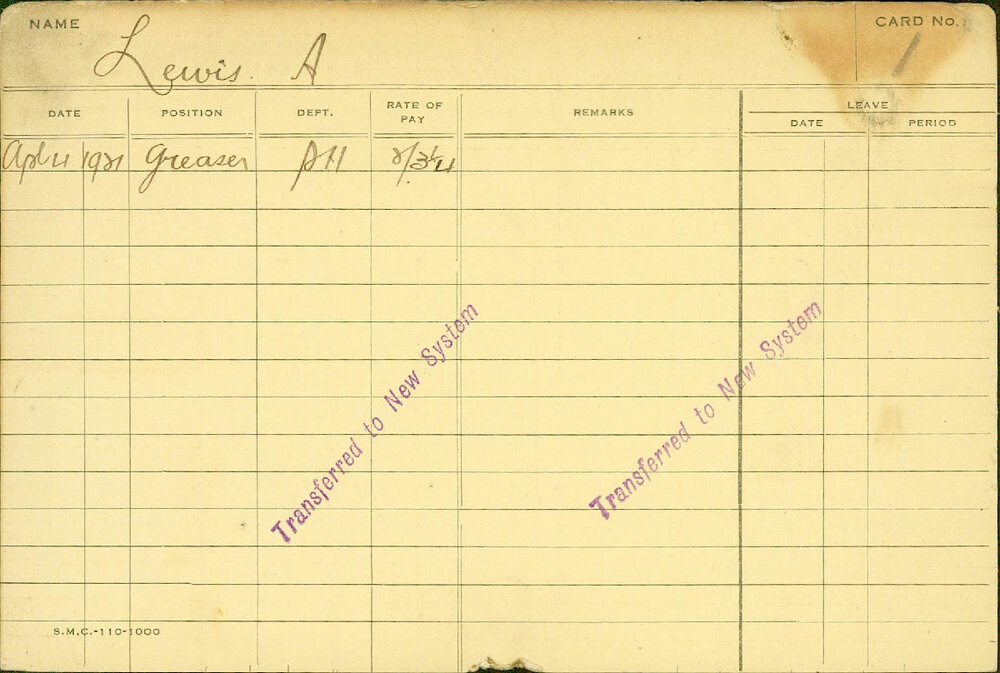 NAME Lewis. A CARD No. 1
DATE POSITION DEPT. RATE OF PAY REMARKS LEAVE
DATE PERIOD
Apl 4 1921 Greaser 2/3¼
Transferred to New System
Transferred to New System
S.M.C.-110-1000